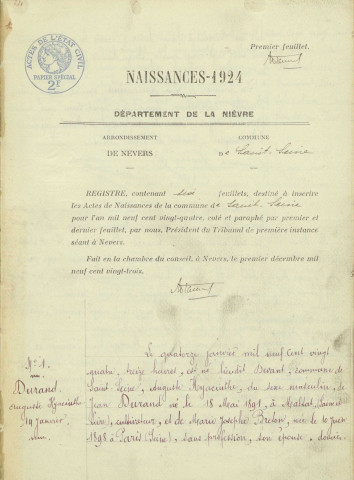 Premier feuillet.
ACTES DE L'ÉTAT CIVIL
PAPIER SPÉCIAL
2F
NAISSANCES-1924
DÉPARTEMENT DE LA NIÈVRE
ARRONDISSEMENT
DE NEVERS
COMMUNE
De Saint-Seine
REGISTRE, contenant six feuillets, destiné à inscrire
les Actes de Naissances de la commune de Saint-Seine
pour l'an mil neuf cent vingt-quatre, coté et paraphé par premier et
dernier feuillet, par nous, Président du Tribunal de première instance
séant à Nevers.
Fait en la chambre du conseil, à Nevers, le premier décembre mil
neuf cent vingt-trois.
No 1.
Durand
Auguste Hyacinthe
14 Janvier
Le quatorze janvier mil neuf cent vingt
quatre, treize heures, est né lieudit Devant, commune de
Saint Seine, Auguste Hyacinthe, du sexe masculin, de
Jean Durand né le 18 Mai 1891, à Maltat, (Saône et
Loire), cultivateur, et de Marie Josèphe Breton, née le 10 Juin
1898 à Paris (Seine), sans profession, son épouse,